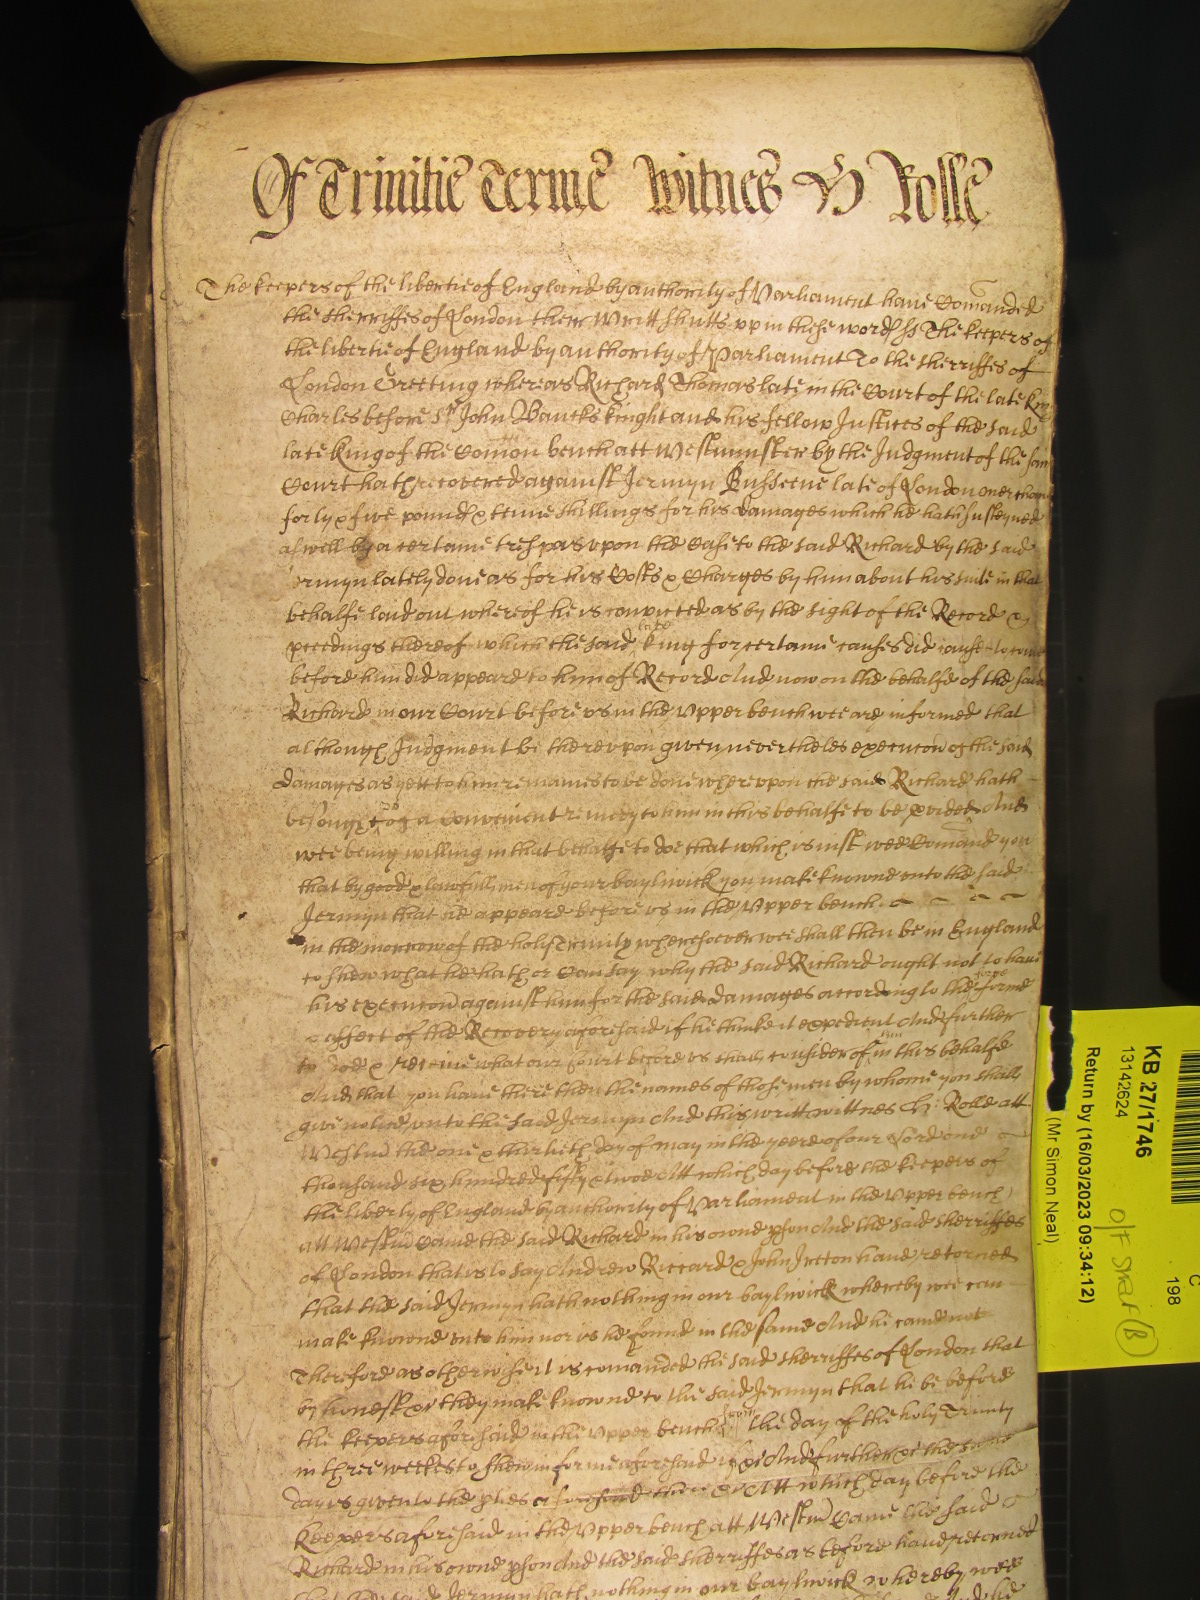 Of Trinitie Terme Witnes H Rolle
The keepers of the libertie of England by authority of Parliament have Comanded
the sherriffes of London their Writt shutts upp in these words ss The keepers of
the libertie of England by authority of Parliament To the sherriffes of
London Greeting whereas Richard Thomas late in the Court of the late King
Charles before Sr John Banckes knight and his fellow Justices of the said
late King of the Comon bench att Westminster by the Judgment of the same
Court hath recovered against Jermyn late of London
forty & five pounds & tenne shillings for his damages which he hath susteyned
aswell by a certaine trespas upon the Case to the said Richard by the said
ermyn lately done as for his Costs & Charges by him about his suite in that
behalfe laid out whereof he is convicted as by the sight of the Record &
pceedings thereof which the said late king for certaine causes did cause to come
before him did appeare to him of Record And now on the behalfe of the said
Richard in our Court before us in the Upper bench wee are informed that
although Judgment be thereupon given neverthelesse execucon of the said
damages as yett to him remaines to be done whereupon the said Richard hath
besought a convenient remedy to him in this behalfe to be pvided And
wee being willing in that behalfe to doe that which is just wee Comand you
that by good & lawfull men of your baylwick you make knowne unto the said
Jermyn that he appeare before us in the Upper bench
in the morrow of the holy Trinity wheresoever wee shall then be in England
to shew what he hath or Can say why the said Richard ought not to have
his execucon against him for the said damages according to the force forme
& affect of the Recovery aforesaid if he thinke it expedient And further
to doe & receive what our Court before us shall consider of him in this behalfe
And that you have there then the names of those men by whome you shall
give notice unto the said Jermyn And this writt wittnes H: Rolle att
Westm the one & thirtieth day of May in the yeere of our Lord one
thousand six hundred fifty & twoe Att which day before the keepers of
the liberty of England by authority of Parliament in the Upper bench
att Westm Came the said Richard in his owne pson And the said sherriffes
of London that is to say Andrew Riccard & John Ireton have retorned
that the said Jermyn hath nothing in our baylwick whereby wee can
make knowne unto him nor is he found in the same And he came not
Therefore as otherwise it is comanded the said sherriffes of London that
by honest &c they make knowne to the said Jermyn that he be before
the keepers aforesaid in the Upper bench from the day of the holy Trinity
in three weekes to shew in forme aforesaid if &c And further &c the same
day is given to the pties Att which day before the
keepers aforesaid in the Upper bench att Westm Came the said
Richard in his owne pson And the said sherriffes as before have retorned
that the said Jermyn hath nothing in our baylwick whereby wee
KB 27/1746
13142624
Return by (16/03/2023 09:34:12)
(Mr Simon Neal)
C
198
O/F Strat B